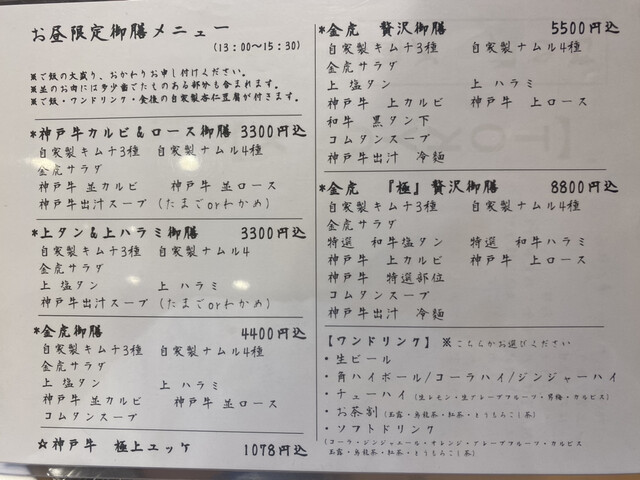 お昼限定御膳メニュー
(13：00〜15：30)
※ご飯の大盛り、おかわりお申し付けください。
※並のお肉には多少歯ごたえのある部分も含まれます。
※ご飯・ワンドリンク・食後の自家製杏仁豆腐が付きます。
*神戸牛カルビ＆ロース御膳 3300円込
自家製キムチ3種 自家製ナムル4種
金虎サラダ
神戸牛 並カルビ 神戸牛 並ロース
神戸牛出汁スープ (たまごorわかめ)
*上タン＆上ハラミ御膳 3300円込
自家製キムチ3種 自家製ナムル4
金虎サラダ
上 塩タン 上 ハラミ
神戸牛出汁スープ (たまごorわかめ)
*金虎御膳 4400円込
自家製キムチ3種 自家製ナムル4種
金虎サラダ
上 塩タン 上 ハラミ
神戸牛 並カルビ 神戸牛 並ロース
コムタンスープ
☆神戸牛 極上ユッケ 1078円込
*金虎 贅沢御膳 5500円込
自家製キムチ3種 自家製ナムル4種
金虎サラダ
上 塩タン 上 ハラミ
神戸牛 上カルビ 神戸牛 上ロース
和牛 黒タン下
コムタンスープ
神戸牛出汁 冷麺
*金虎 『極』贅沢御膳 8800円込
自家製キムチ3種 自家製ナムル4種
金虎サラダ
特選 和牛塩タン 特選 和牛ハラミ
神戸牛 上カルビ 神戸牛 上ロース
神戸牛 特選部位
コムタンスープ
神戸牛出汁 冷麺
【ワンドリンク】 ※こちらからお選びください
・生ビール
・角ハイボール/コーラハイ/ジンジャーハイ
・チューハイ (生レモン・生グレープフルーツ・男梅・カルピス)
・お茶割 (玉露・烏龍茶・紅茶・とうもろこし茶)
・ソフトドリンク
(コーラ・ジンジャエール・オレンジ・グレープフルーツ・カルピス
玉露・烏龍茶・紅茶・とうもろこし茶)